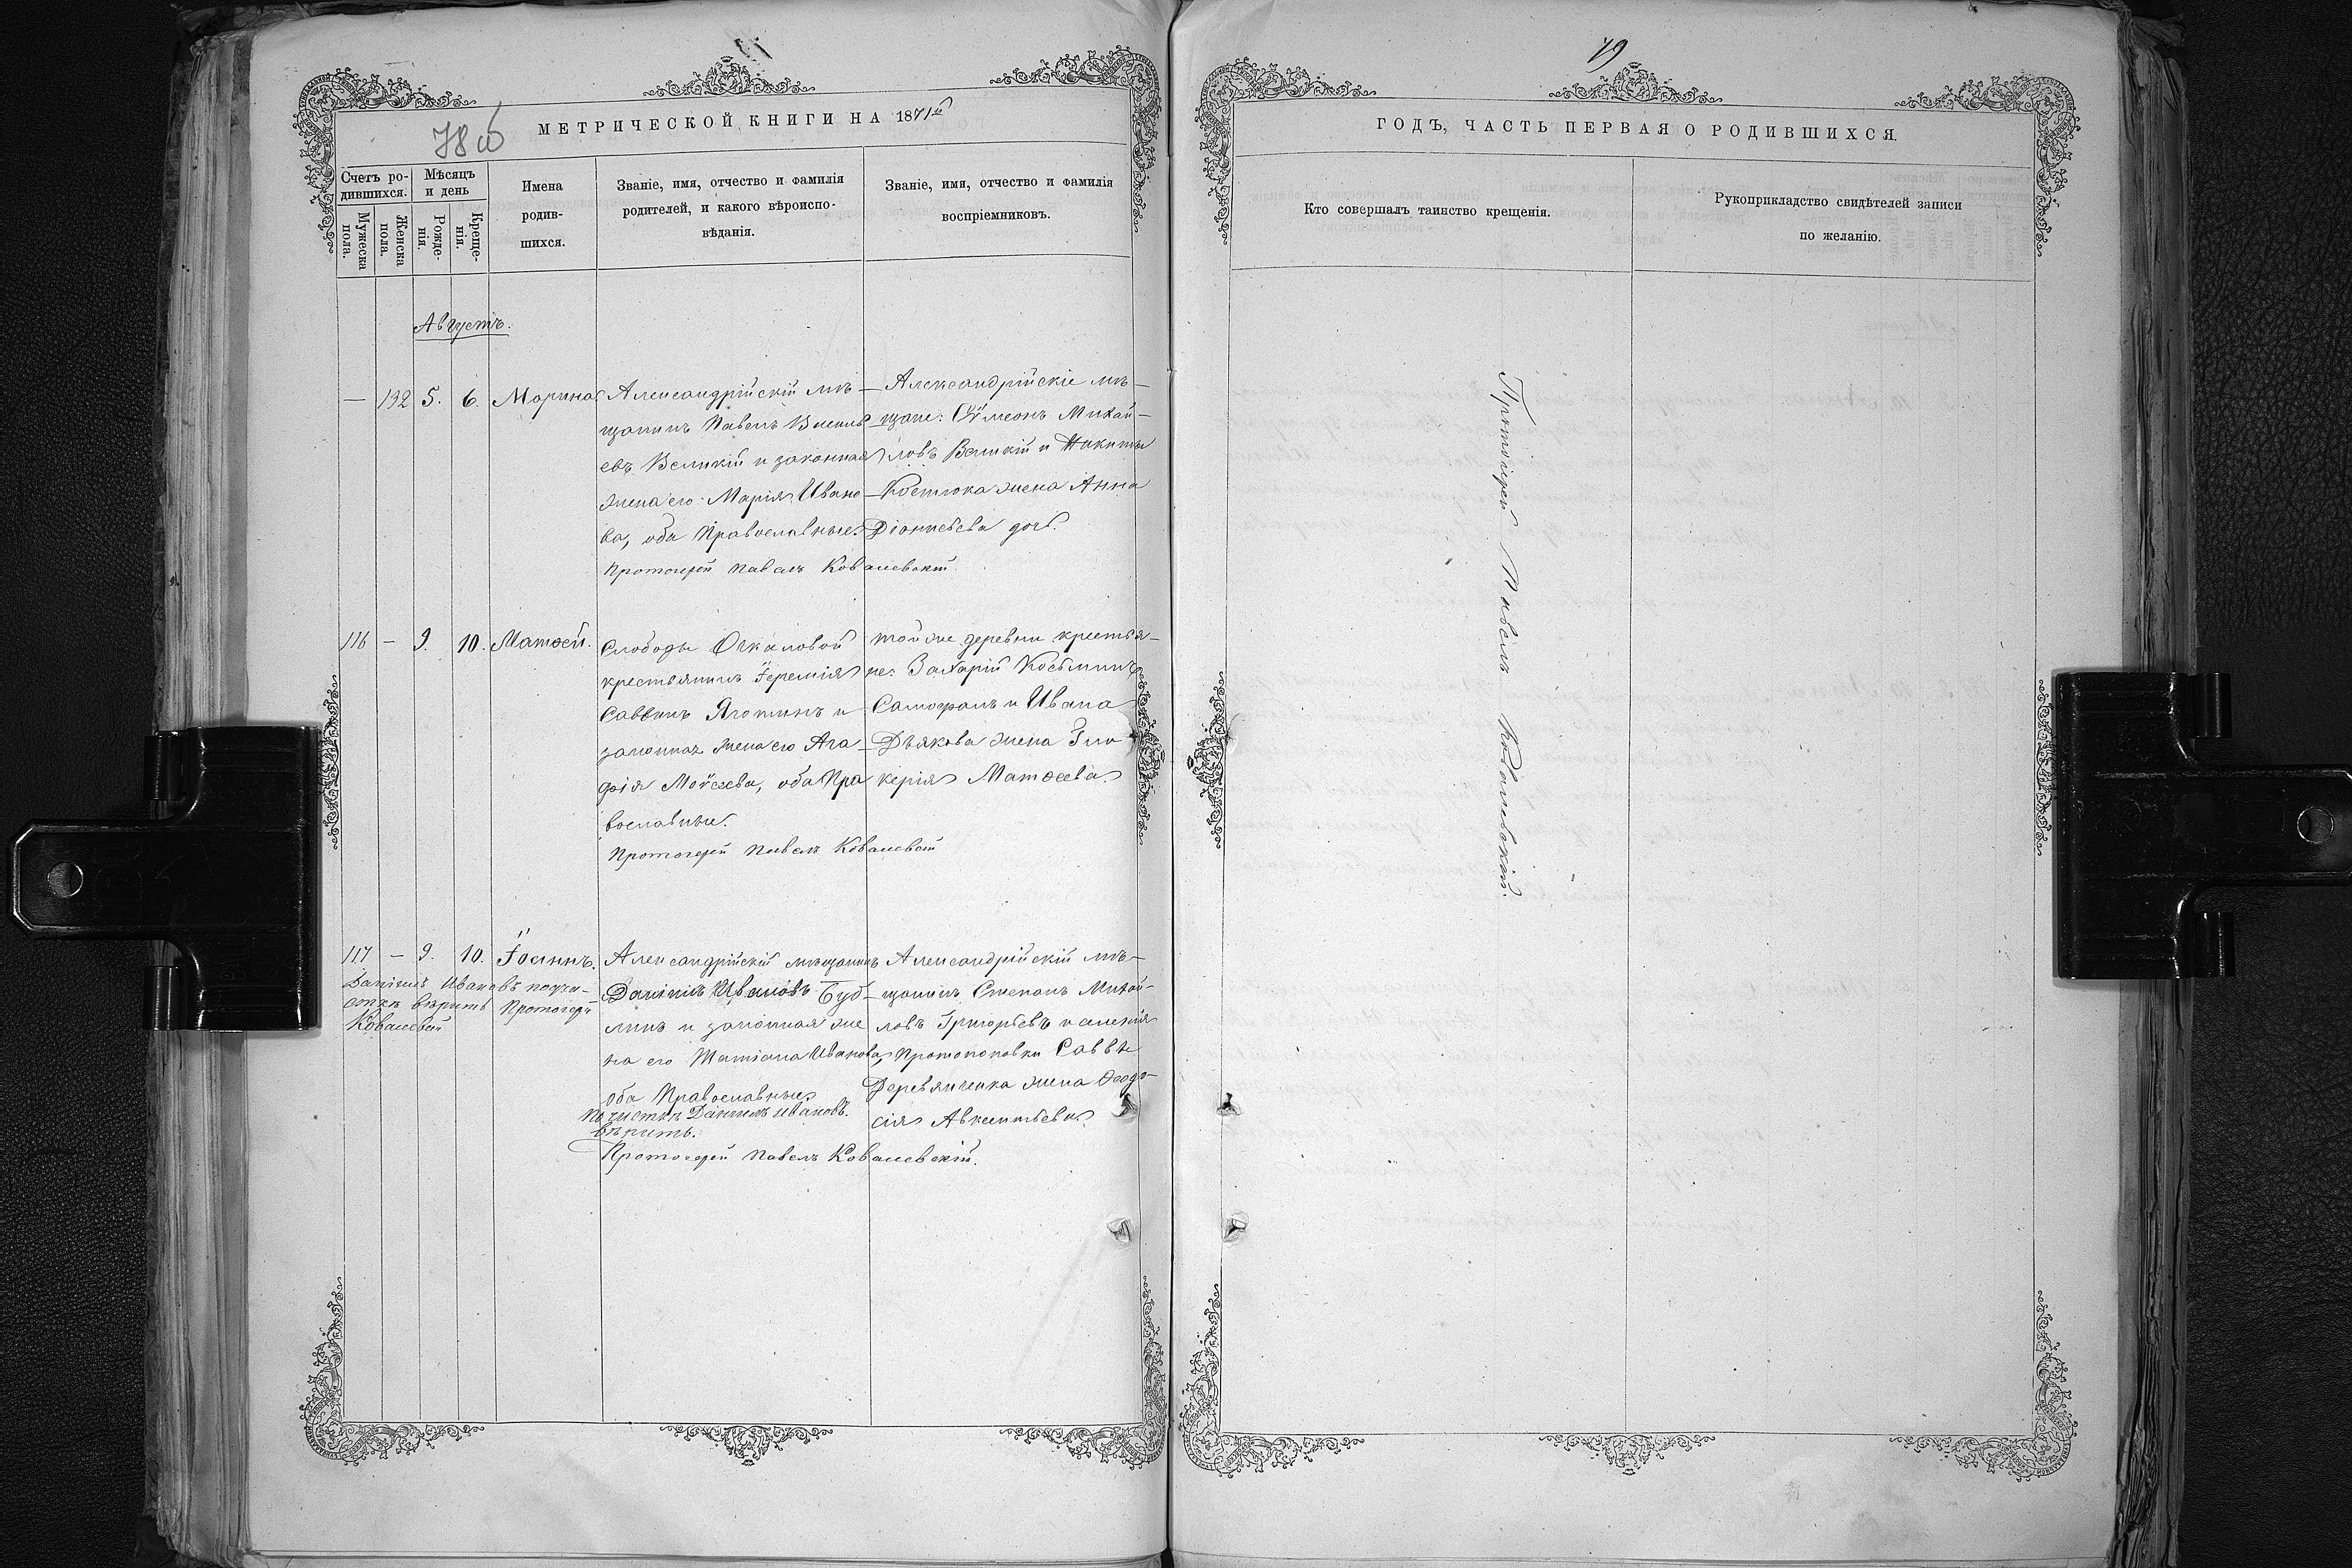 78 об
МЕТРИЧЕСКОЙ КНИГИ НА 1871й
Счетъ ро-
дившихся.
Мѣсяцъ
и день
Мужеска
пола.
Женска
пола.
Рожде-
нія.
Креще-
нія.
Имена
родив-
шихся.
Званіе, имя, отчество и фамилія
родителей, и какого вѣроиспо-
вѣданія.
Званіе, имя, отчество и фамилія
воспріемниковъ.
Августъ.
— 132 5. 6. Марина
Александрійскій мѣ-
щанинъ Павелъ Василь
евъ Великій и законная
жена его Марія Ивано
ва, оба Православные.
Протоіерей Павелъ Ковалевскій
Александрійскіе мѣ-
щане: Сѵмеонъ Михай-
ловъ Великій и Никиты
Костюка жена Анна
Діонисіева дочь.
116 — 9. 10. Матѳей.
Слободы Очкаловой
крестьянинъ Іеремія
Саввинъ Яготинъ и
законная жена его Ага
фія Моѵсеева, оба Пра
вославные.
Протоіерей Павелъ Ковалевскій
той же деревни крестья-
не: Захарій Косьминъ
Самофалъ и Ивана
Дьякова жена Гли
керія Матѳеева.
117 — 9. 10. Іоаннъ.
Даніилъ Ивановъ почи-
сткѣ вѣрить Протоіерей
Ковалевскій
Александрійскій мѣщанинъ
Даніилъ Ивановъ Буб-
ликъ и законная же
на его Татіана Иванова,
оба Православные
По чисткѣ Даніилъ Ивановъ
вѣрить.
Протоіерей Павелъ Ковалевскій.
Александрійскій мѣ-
щанинъ Степанъ Михай-
ловъ Григорьевъ и селенія
Протопоповки Саввы
Деревянченка жена Ѳеодо-
сія Авксентьева.
79
ГОДЪ, ЧАСТЬ ПЕРВАЯ О РОДИВШИХСЯ.
Кто совершалъ таинство крещенія.
Рукоприкладство свидѣтелей записи
по желанію.
Протоіерей Павелъ Ковалевскій.